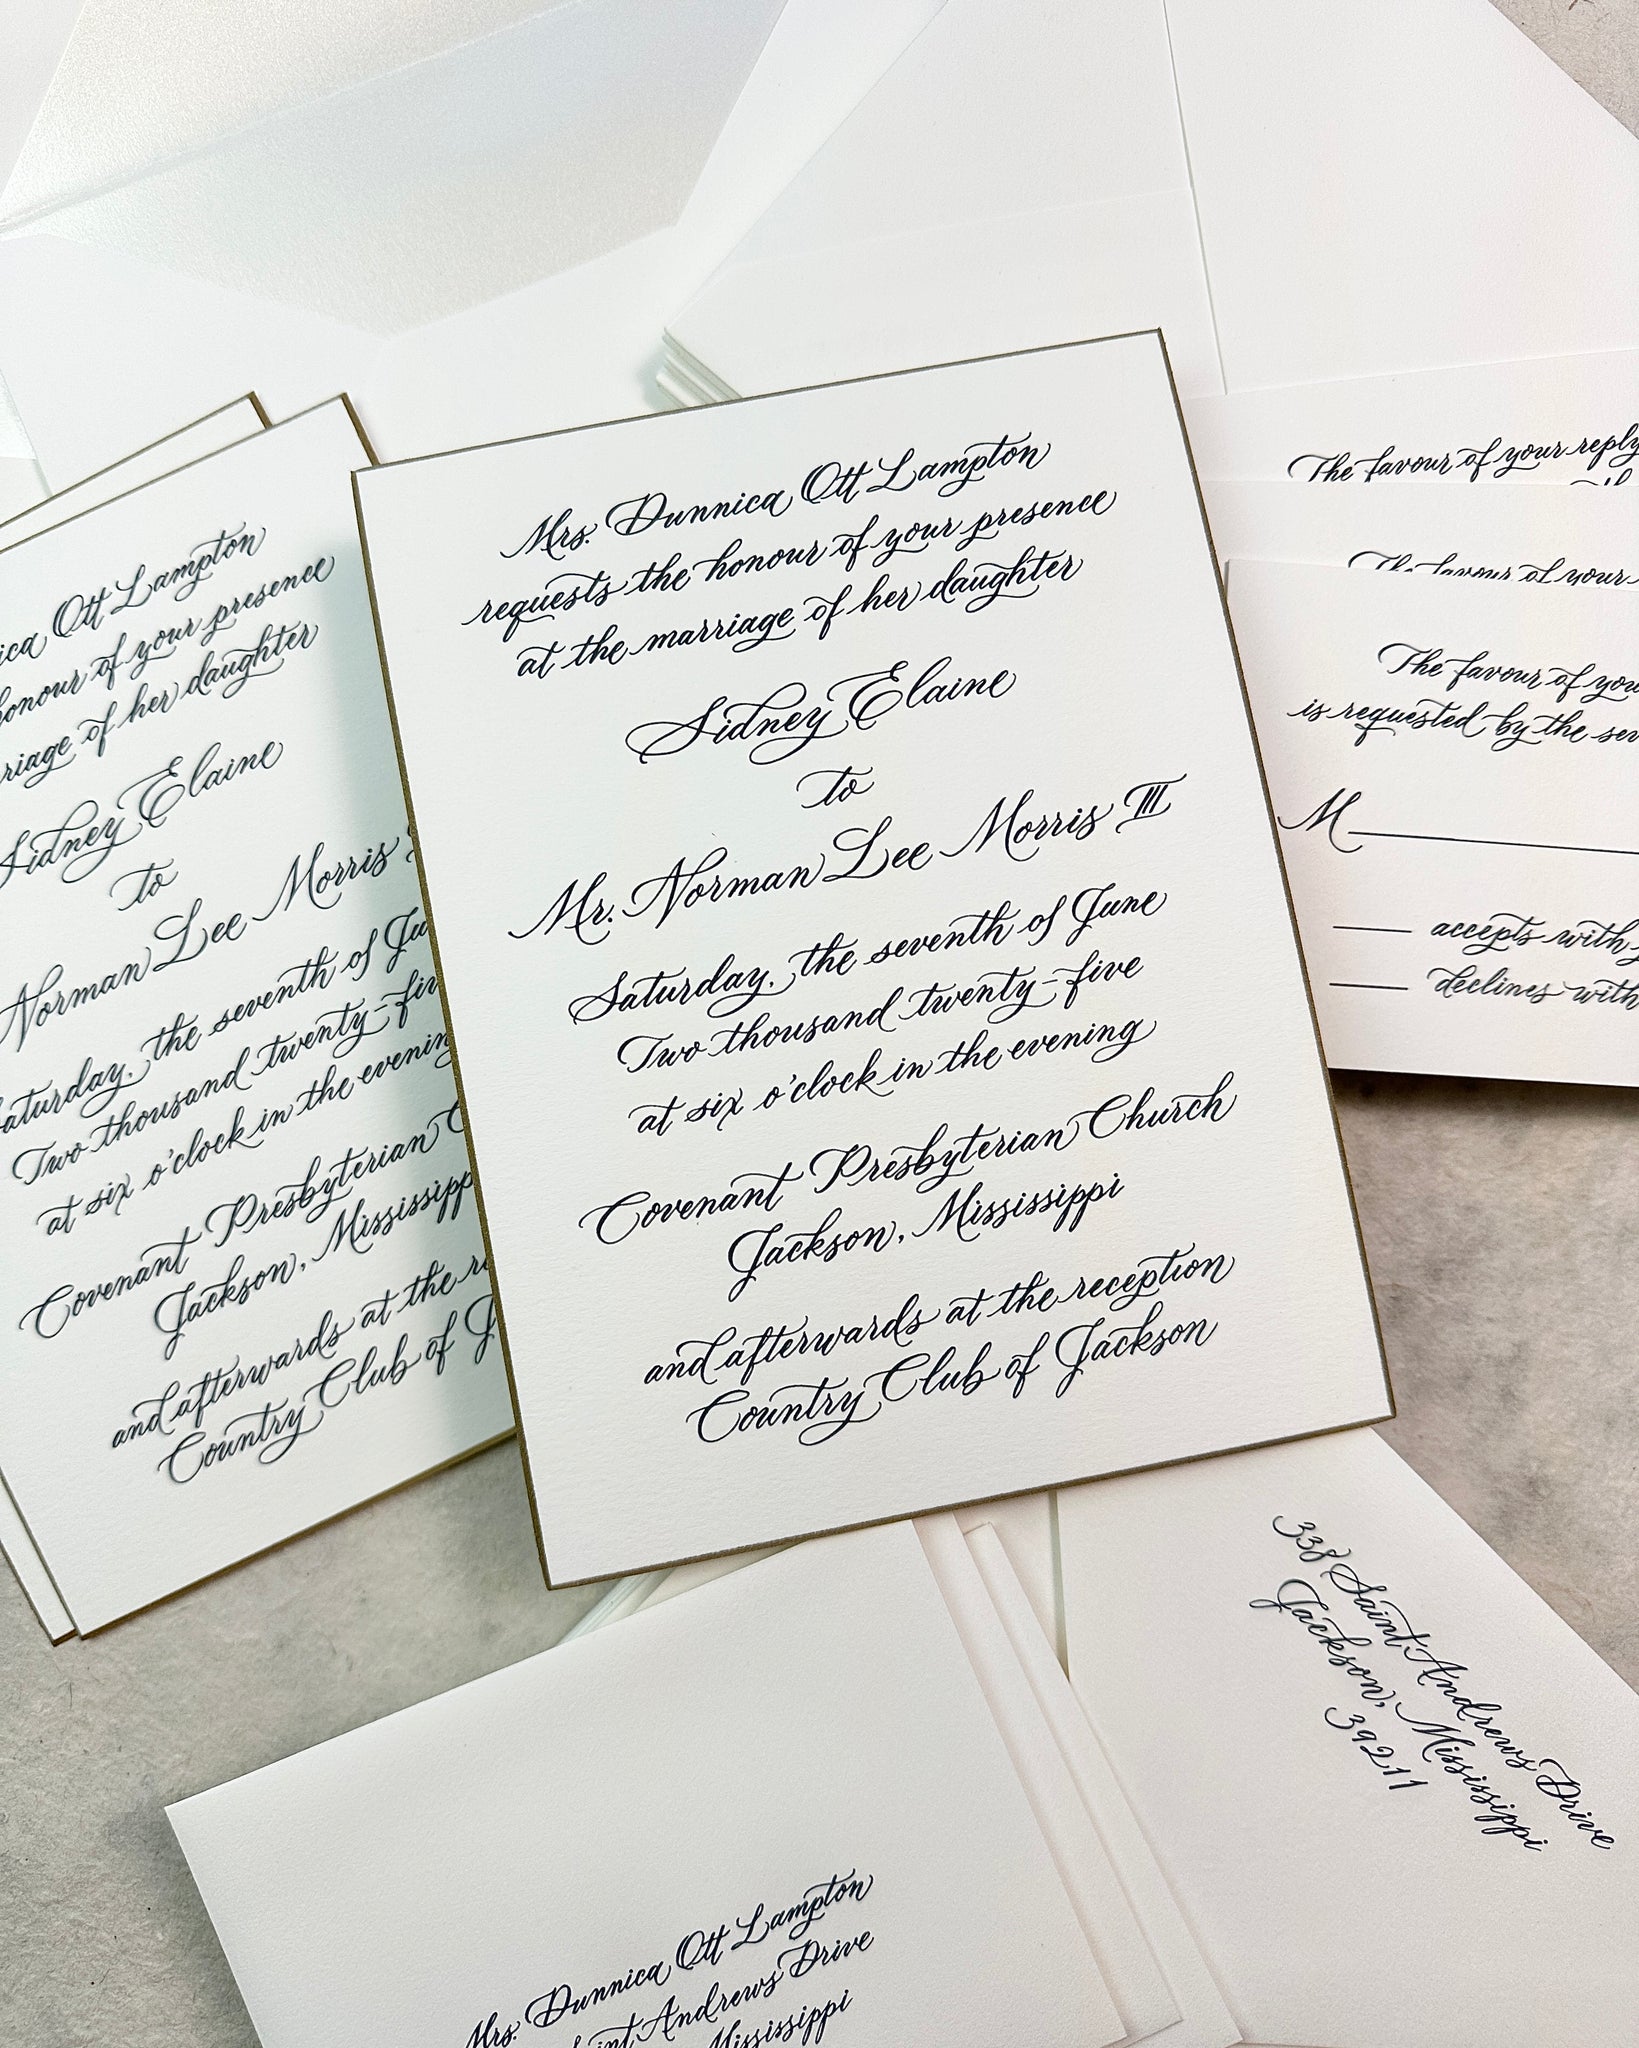 Mrs. Dunnica Ott Lampton
requests the honour of your presence
at the marriage of her daughter
Sidney Elaine
to
Mr. Norman Lee Morris III
Saturday, the seventh of June
Two thousand twenty-five
at six o'clock in the evening
Covenant Presbyterian Church
Jackson, Mississippi
and afterwards at the reception
Country Club of Jackson
Ott Lampton
honour of your presence
of her daughter
Sidney Elaine
to
Norman Lee Morris
Saturday, the seventh of
Two thousand twenty-five
at six o'clock in the evening
Covenant Presbyterian
Jackson, Mississippi
and afterwards at the
Country Club of
The favour of your reply
The favour of your
The favour of your
is requested by the
M
accepts with
declines with
338 Saint Andrews Drive
Jackson, Mississippi
39211
Mrs. Dunnica Ott Lampton
Saint Andrews Drive
Mississippi